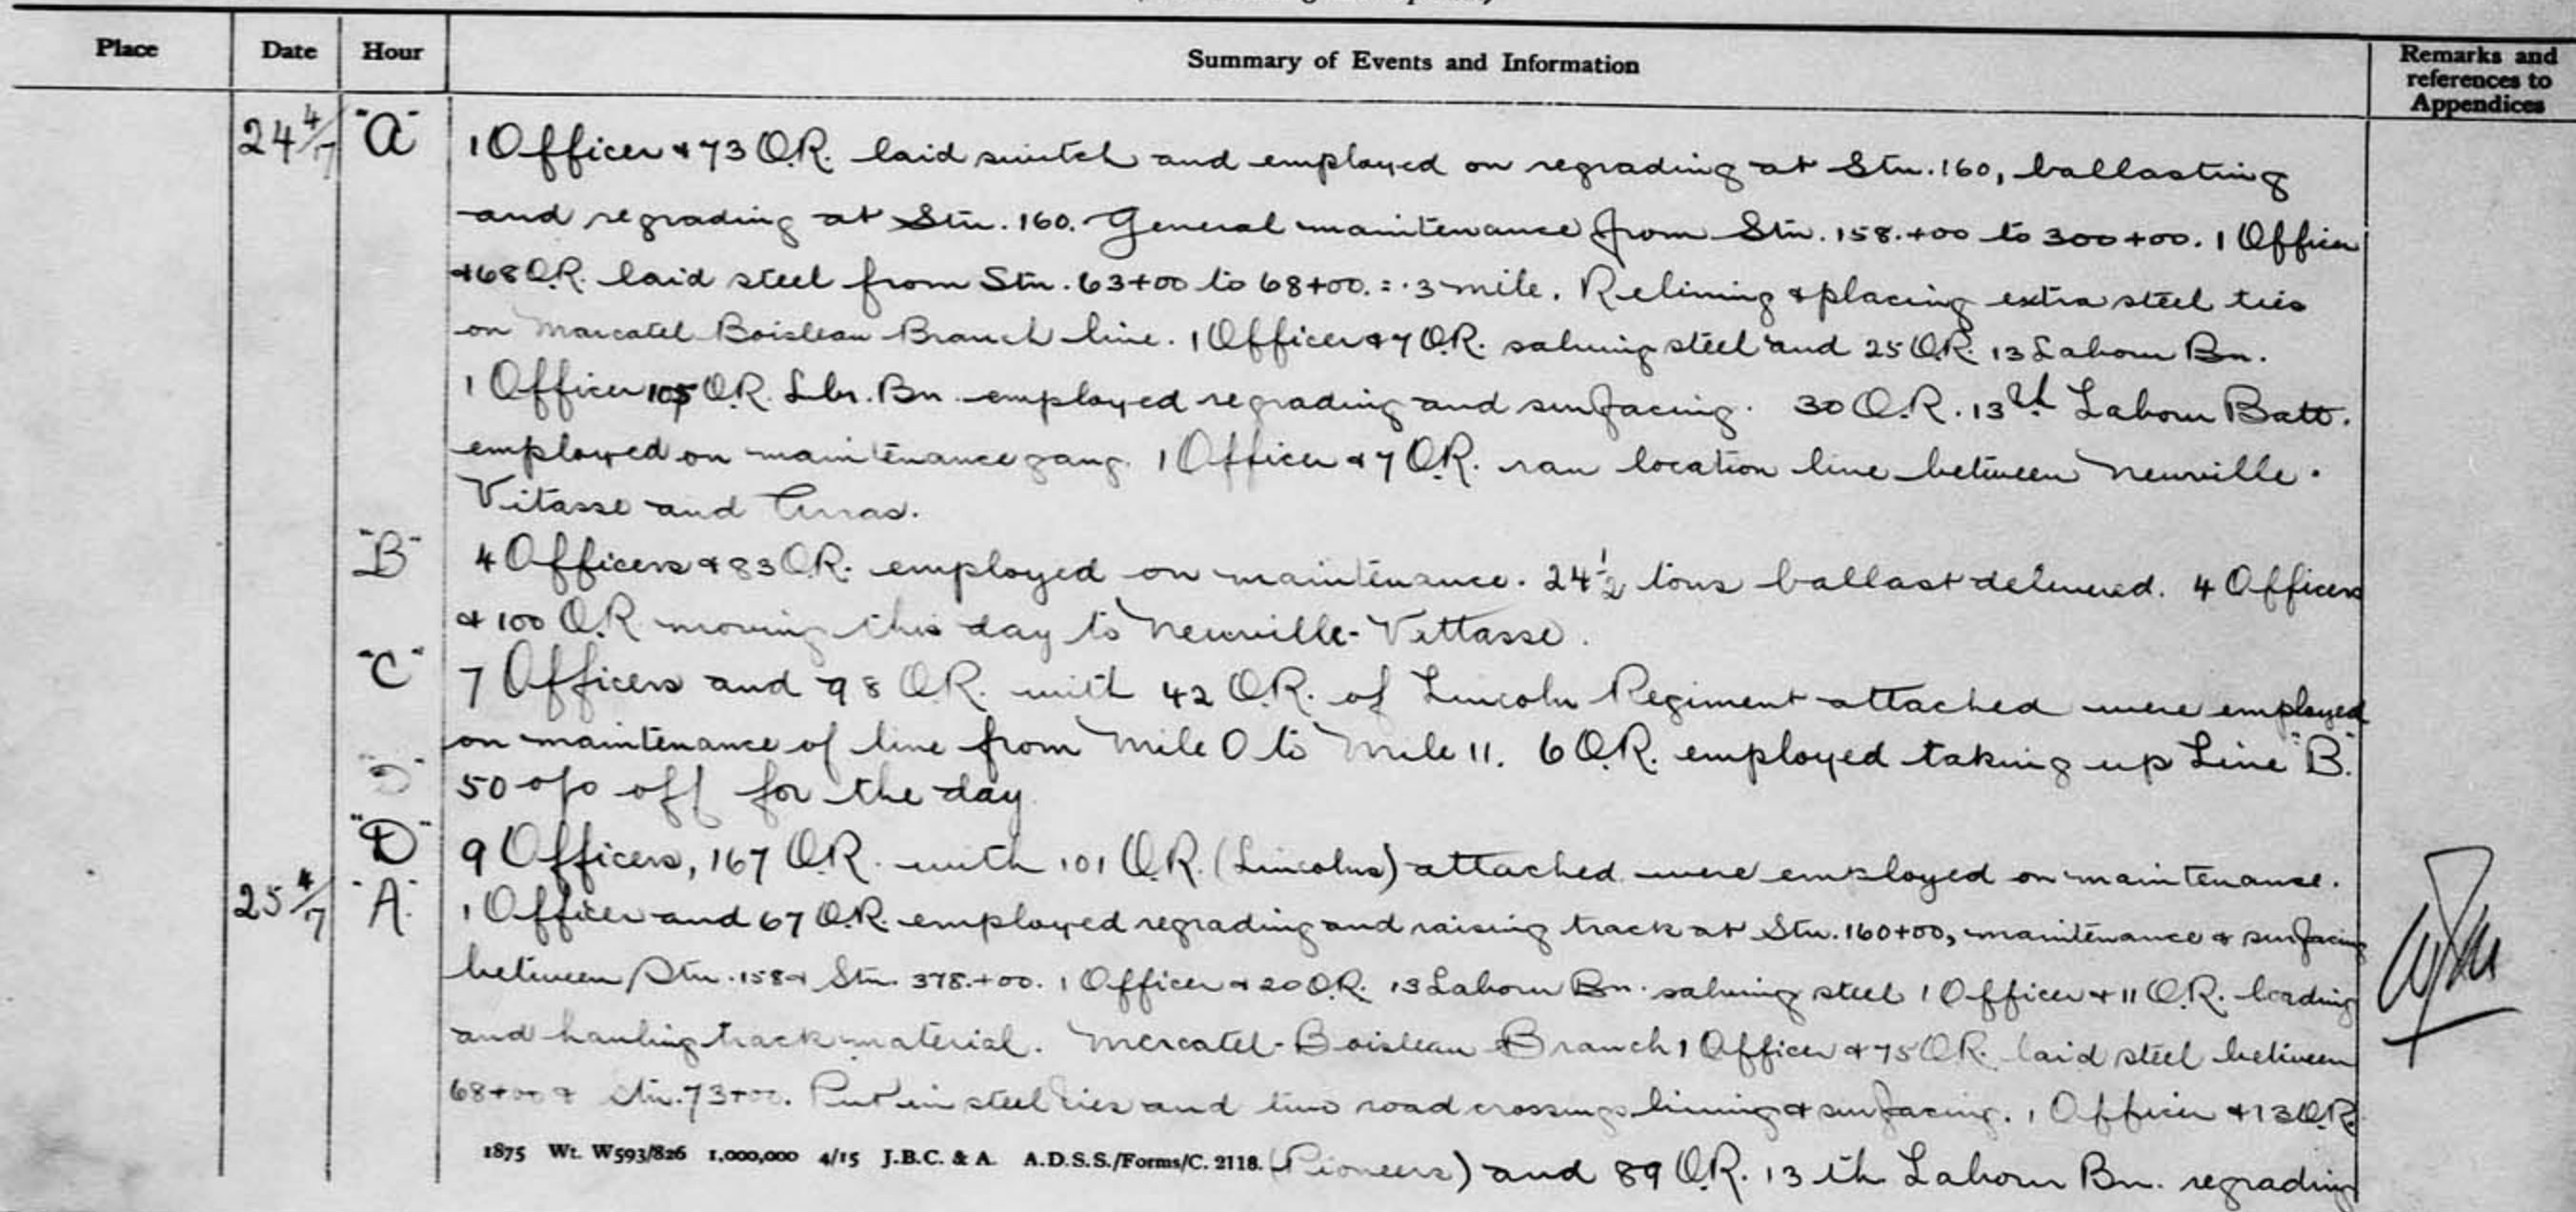 Place Date Hour Summary of Events and Information Remarks and references to Appendices
24 4/17 "A" 1 Officer & 73 O.R. laid switch and employed on regrading at Stn. 160, ballasting
and regrading at Stn. 160. General maintenance from Stn. 158.+00 to 300+00. 1 Officer
&68 O.R. laid steel from Stn. 63+00 to 68+00. = .3 mile. Relining & placing extra steel ties
on Marcatel Boisleau Branch line. 1 Officer & 7 O.R. salving steel and 25 O.R. 13 Labour Bn.
1 Officer 105 O.R. Lbr. Bn. employed regrading and surfacing. 30 O.R. 13th Labour Batt.
employed on maintenance gang. 1 Officer & 7 O.R. ran location line between Neuville-
Vitasse and Arras.
"B" 4 Officers & 83 O.R. employed on maintenance. 24 1/2 tons ballast delivered. 4 Officers
& 100 O.R moving this day to Neuville-Vittasse.
"C" 7 Officers and 98 O.R. with 42 O.R. of Lincoln Regiment attached were employed
on maintenance of line from Mile 0 to Mile 11. 6 O.R. employed taking up Line "B".
50 o/o off for the day
"D" 9 Officers, 167 O.R. with 101 O.R. (Lincolns) attached were employed on maintenance.
25 4/17 "A" 1 Officer and 67 O.R. employed regrading and raising track at Stn. 160+00, maintenance & surfacing
between Stn. 158 & Stn. 378.+00. 1 Officer & 20 O.R. 13 Labour Bn. salving steel 1 Officer & 11 O.R. loading
and hauling track material. Mercatel-Boisleau Branch 1 Officer & 75 O.R. laid steel between
68+00 & Stn. 73+00. Put in steel ties and two road crossings lining & surfacing. 1 Officer & 13 O.R.
1875 Wt. W593/826 1,000,000 4/15 J.B.C. & A. A.D.S.S./Forms/C. 2118. (Pioneers) and 89 O.R. 13th Labour Bn. regrading